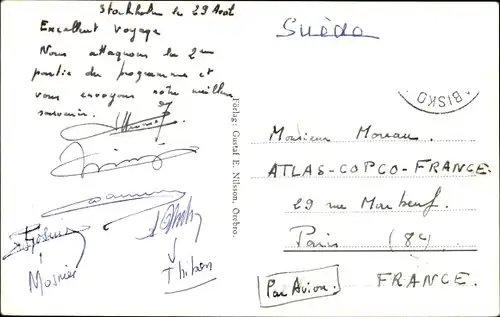 Stockholm le 29 Août
Excellent Voyage
Nous attaquons la 2ème
partie du programme et
vous envoyons notre meilleur
souvenir.
Mosnier
Thibon
Förlag: Gustaf E. Nilsson, Örebro.
Suède
ABISKO
Monsieur Moreau.
ATLAS-COPCO-FRANCE.
29 rue Marbeuf.
Paris (8e)
Par Avion.
FRANCE.